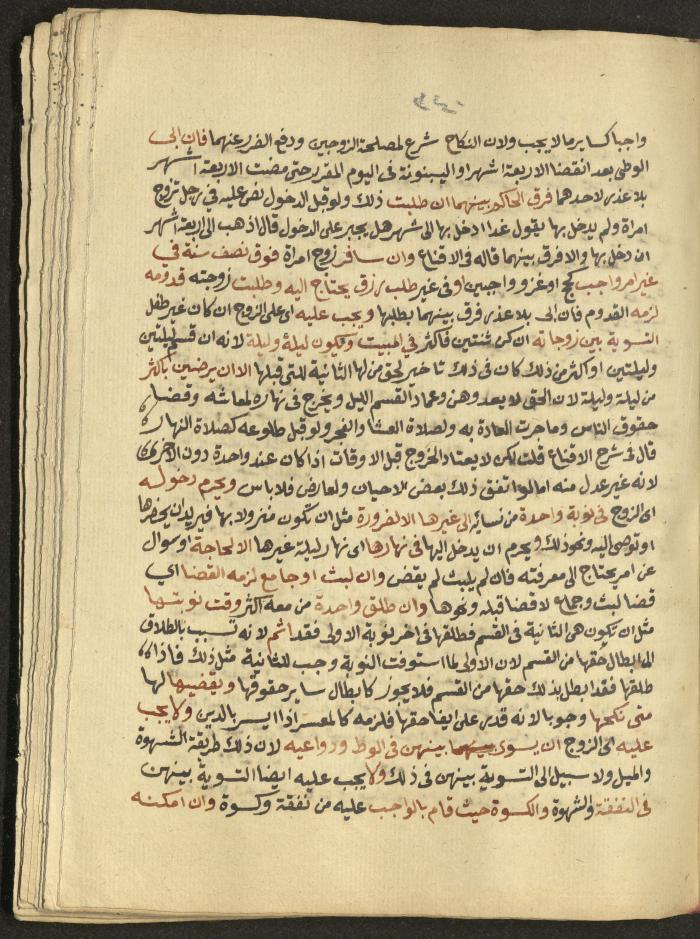 واجبا كسا يرما لا يجب ولان النكاح شرع لمصلحة الزوجين ودفع الضرر عنهما فان ابى
الوطى بعد انقضا الاربعة اشهر او البينونة في اليوم المقرر حتى مضت الاربعة اشهر
بلا عذر لاحدهما فرق الحاكم بينهما ان طلبت ذلك ولو قبل الدخول نص عليه في رجل تزوج
امراة ولم يدخل بها يقول غدا ادخل بها الى شهر هل يجبر على الدخول قال اذهب الى اربعة اشهر
ان دخل بها والا فرق بينهما قاله في الاقناع وان سافر زوج امراة فوق نصف سنة في
غير امر واجب كحج او غزو واجبين او في غير طلب رزق يحتاج اليه وطلبت زوجته قدومه
لزمه القدوم فان ابى بلا عذر فرق بينهما بطلبها ويجب عليه اى على الزوج ان كان غير طفل
التسوية بين زوجاته ان كن ثنتين فاكثر في المبيت ويكون ليلة وليلة لانه ان قسم ليلتين
وليلتين او اكثر من ذلك كان في ذلك تاخير لحق من لها الثانية للتى قبلها الا ان يرضين باكثر
من ليلة وليلة لان الحق لا يعدوهن وعماد القسم الليل ويخرج في نهاره لمعاشه وقضا
حقوق الناس وما جرت العادة به ولصلاة العشا والفجر ولو قبل طلوعه كصلاة النهار
قال في شرح الاقناع قلت لكن لا يعتاد الخروج قبل الاوقات اذا كان عند واحدة دون الاخرى
لانه غير عدل منه اما لو اتفق ذلك بعض الاحيان ولعارض فلا باس ويحرم دخوله
اى الزوج في نوبة واحدة من نسائه الى غيرها الا لضرورة مثل ان تكون منزولا بها فيريد ان يحضرها
او توصى اليه ونحو ذلك ويحرم ان يدخل اليها في نهارها اى نهار ليلة غيرها الا لحاجة او سوال
عن امر يحتاج الى معرفته فان لم يلبث لم يقض وان لبث او جامع لزمه القضا اي
قضا لبث وجماع لا قضا قبلة ونحوها وان طلق واحدة من معه اكثر وقت نوبتها
مثل ان تكون هى الثانية في القسم فطلقها في اخر نوبة الاولى فقد اثم لانه تسبب بالطلاق
الى ابطال حقها من القسم لان الاولى لما استوفت النوبة وجب للثانية مثل ذلك فاذا
طلقها فقد ابطل بذلك حقها من القسم فلا يجوز كابطال ساير حقوقها ويقضيها لها
متى نكحها وجوبا لانه قدر على ايفا حقها فلزمه كالمعسر اذا ايسر بالدين ولا يجب
عليه اى الزوج ان يسوى بينهن في الوطى ودواعيه لان ذلك طريقه الشهوة
والميل ولا سبيل الى التسوية بينهن في ذلك ولا يجب عليه ايضا التسوية بينهن
في النفقة والشهوة والكسوة حيث قام بالواجب عليه من نفقة وكسوة وان امكنه